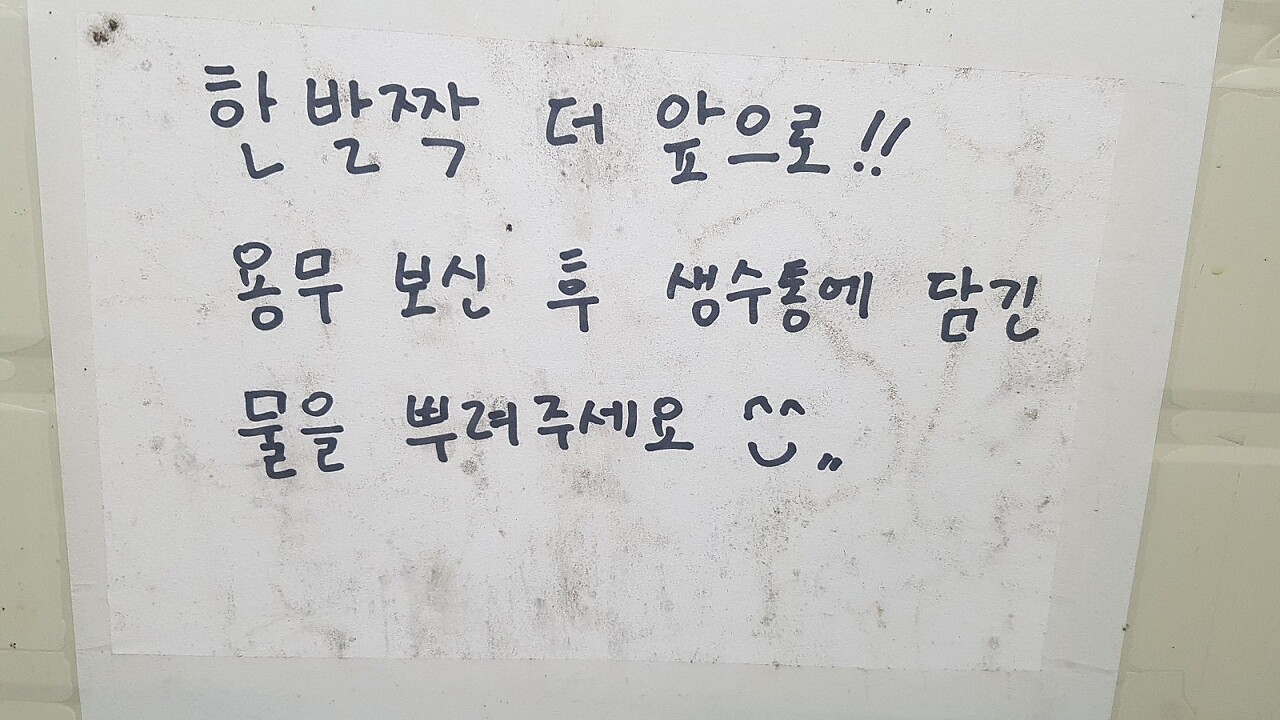 한발짝 더 앞으로!!
용무 보신 후 생수통에 담긴
물을 뿌려주세요 ^^